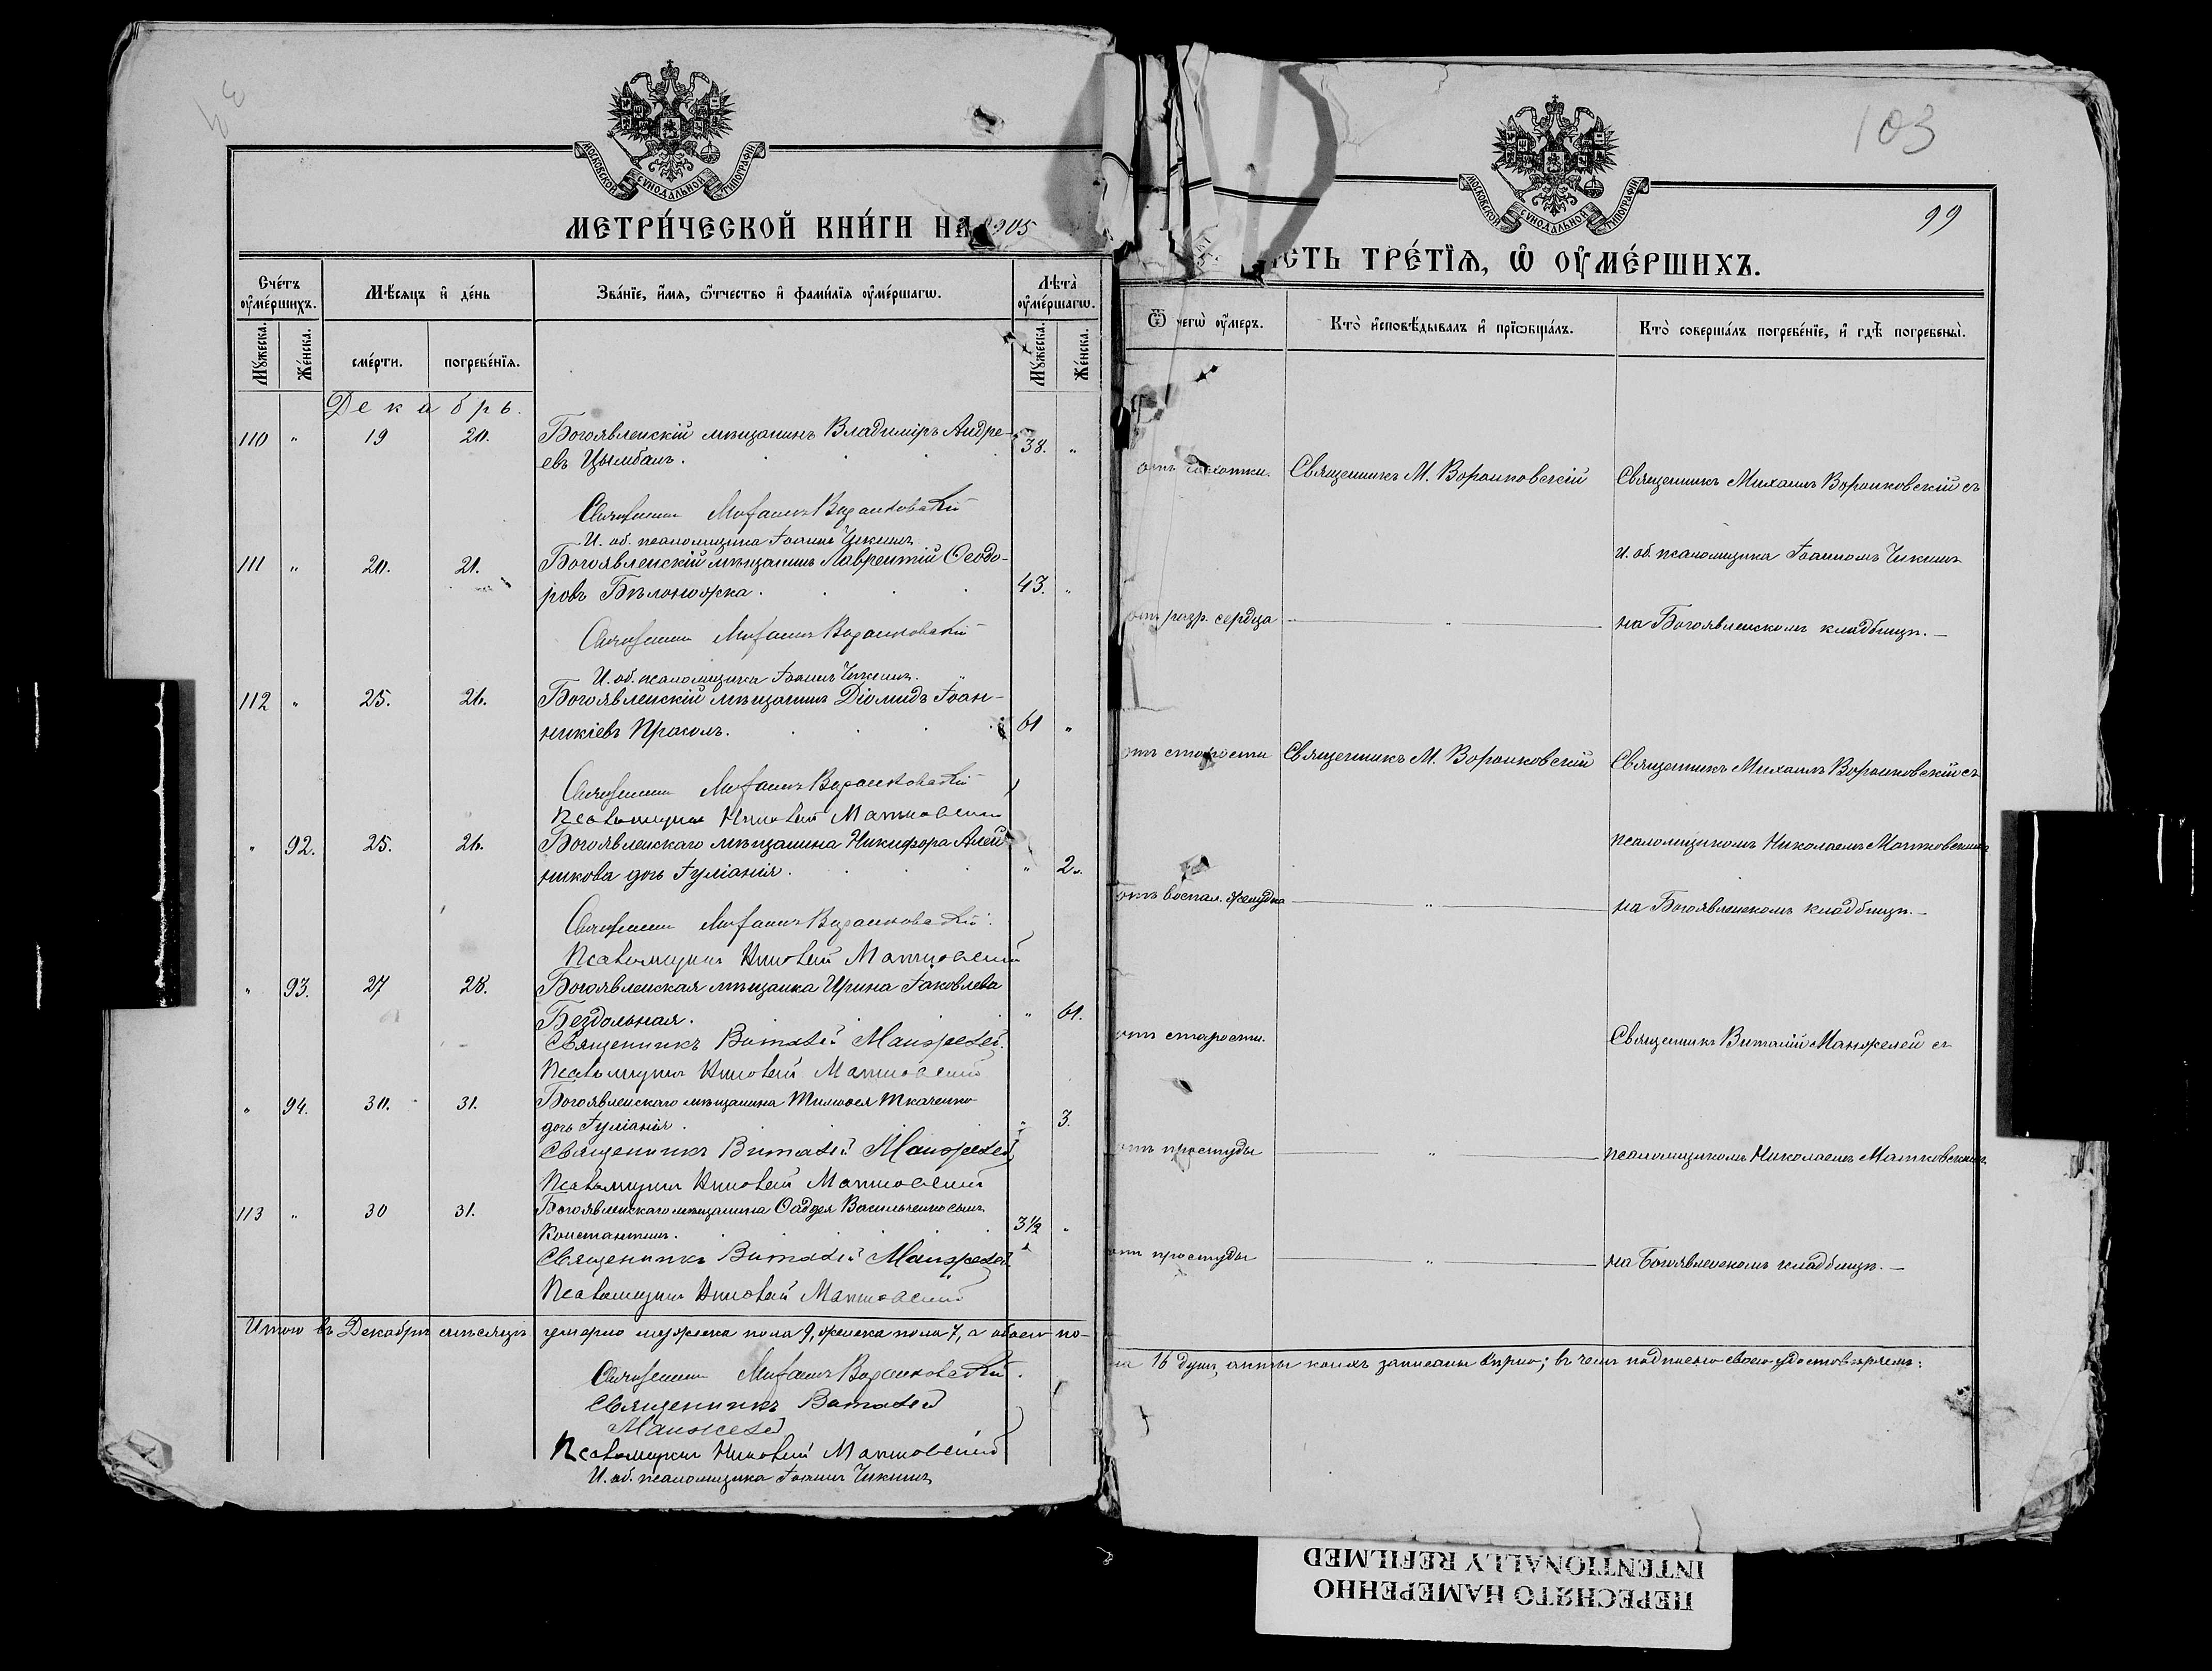 103
99
МОСКОВСКОЙ СѴНОДАЛЬНОЙ ТИПОГРАФІИ
МЕТРИ́ЧЕСКОЙ КНИ́ГИ НА 1905
Сче́тъ ᲂу҆ме́ршихъ.
Мѣ́сяцъ и҆ де́нь
Зва́нїе, и҆́мя, ѻ҆́тчество и҆ фами́лїя ᲂу҆ме́ршагѡ.
Лѣ̑та ᲂу҆ме́ршагѡ.
Мꙋ́жеска.
Же́нска.
сме́рти.
погребе́нїя.
Мꙋ́жеска.
Же́нска.
Декабрь.
110 " 19 20. Богоявленскій мѣщанинъ Владиміръ Андре- 38. "
евъ Цымбалъ.
Священникъ Михаилъ Воронковскій
И. об. псаломщика Іоаннъ Чикинъ
111 " 20. 21. Богоявленскій мѣщанинъ Лаврентій Ѳеодо-
ровъ Бѣлоножка. 43. "
Священникъ Михаилъ Воронковскій
И. об. псаломщика Іоаннъ Чикинъ.
112 " 25. 26. Богоявленскій мѣщанинъ Діомидъ Іоан-
никіевъ Прокопъ. 61 "
Священникъ Михаилъ Воронковскій
Псаломщикъ Николай Матковскій
" 92. 25. 26. Богоявленскаго мѣщанина Никифора Алей-
никова дочь Іуліанія. " 2.
Священникъ Михаилъ Воронковскій.
Псаломщикъ Николай Матковскій
" 93. 27 28. Богоявленская мѣщанка Ирина Іаковлева
Бездольная. " 61.
Священникъ Виталій Манжелей.
Псаломщикъ Николай Матковскій
" 94. 30. 31. Богоявленскаго мѣщанина Тимоѳея Ткаченко
дочь Іуліанія. " 3.
Священникъ Виталій Манжелей
Псаломщикъ Николай Матковскій
113 " 30 31. Богоявленскаго мѣщанина Ѳаддея Васильченко сынъ
Константинъ. 3½ "
Священникъ Виталій Манжелей
Псаломщикъ Николай Матковскій
Итого въ Декабрѣ мѣсяцѣ умерло мужеска пола 9, женска пола 7, а обоего по-
Священникъ Михаилъ Воронковскій.
Священникъ Виталій
Манжелей
Псаломщикъ Николай Матковскій
И. об. псаломщика Іоаннъ Чикинъ
МОСКОВСКОЙ СѴНОДАЛЬНОЙ ТИПОГРАФІИ
СТЬ ТРЕ́ТЇѦ, Ѡ҆ ОУ҆МЕ́РШИХЪ.
Ѿ чегѡ̀ ᲂу҆́меръ.
Кто̀ и҆сповѣ́дывалъ и҆ прїѡбща́лъ.
Кто̀ соверша́лъ погребе́нїе, и҆ гдѣ̀ погребены̀.
отъ чахотки. Священникъ М. Воронковскій Священникъ Михаилъ Воронковскій съ
и. об. псаломщика Іоанномъ Чикинъ
отъ разр. сердца " на Богоявленскомъ кладбищѣ.
отъ старости Священникъ М. Воронковскій Священникъ Михаилъ Воронковскій съ
псаломщикомъ Николаемъ Матковскимъ
отъ воспал. желудка " на Богоявленскомъ кладбищѣ.
отъ старости. Священникъ Виталій Манжелей съ
отъ простуды " псаломщикомъ Николаемъ Матковскимъ
отъ простуды " на Богоявленскомъ кладбищѣ.
ла 16 душъ, акты коихъ записаны вѣрно; въ чемъ подписью своею удостовѣряемъ:
ПЕРЕСНЯТО НАМЕРЕННО
INTENTIONALLY REFILMED